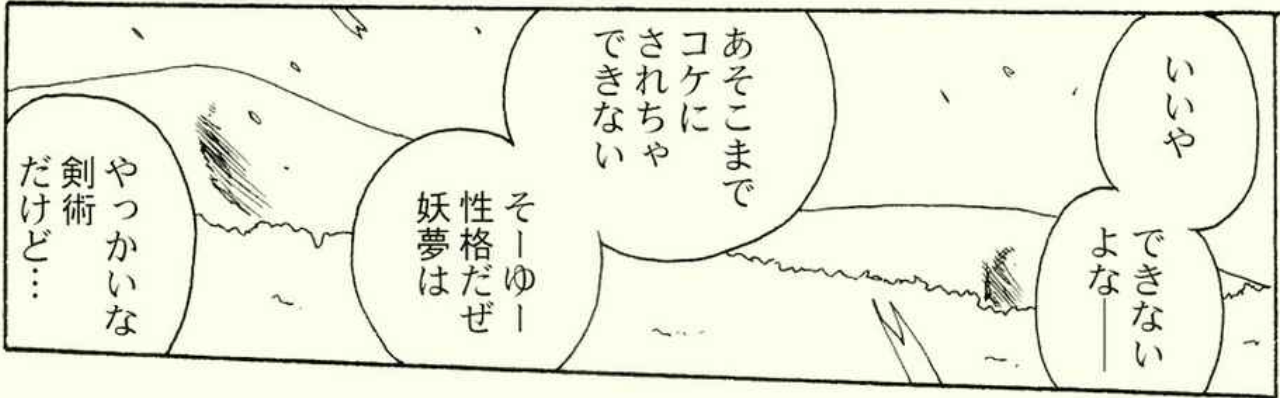 いいや
できない
よな――
あそこまで
コケに
されちゃ
できない
そーゆー
性格だぜ
妖夢は
やっかいな
剣術
だけど…